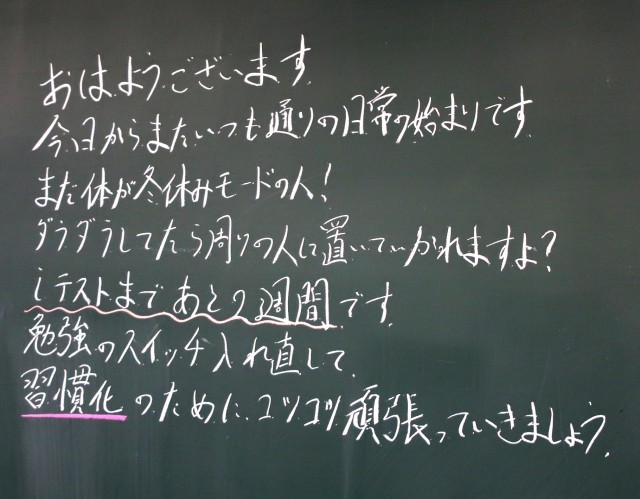 おはようございます
今日からまたいつも通りの日常の始まりです
まだ体が冬休みモードの人!
ダラダラしてたら周りの人に置いていかれますよ?
iテストまであと2週間です
勉強のスイッチ入れ直して、
習慣化のために、コツコツ頑張っていきましょう。